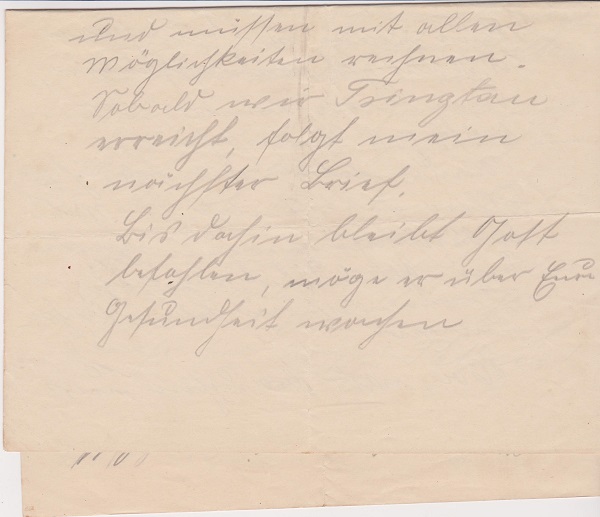 und müssen mit allen
Möglichkeiten rechnen.
Sobald wir Tsingtau
erreicht, folgt mein
nächster Brief.
Bis dahin bleibt Gott
befohlen, möge er über Eure
Gesundheit wachen